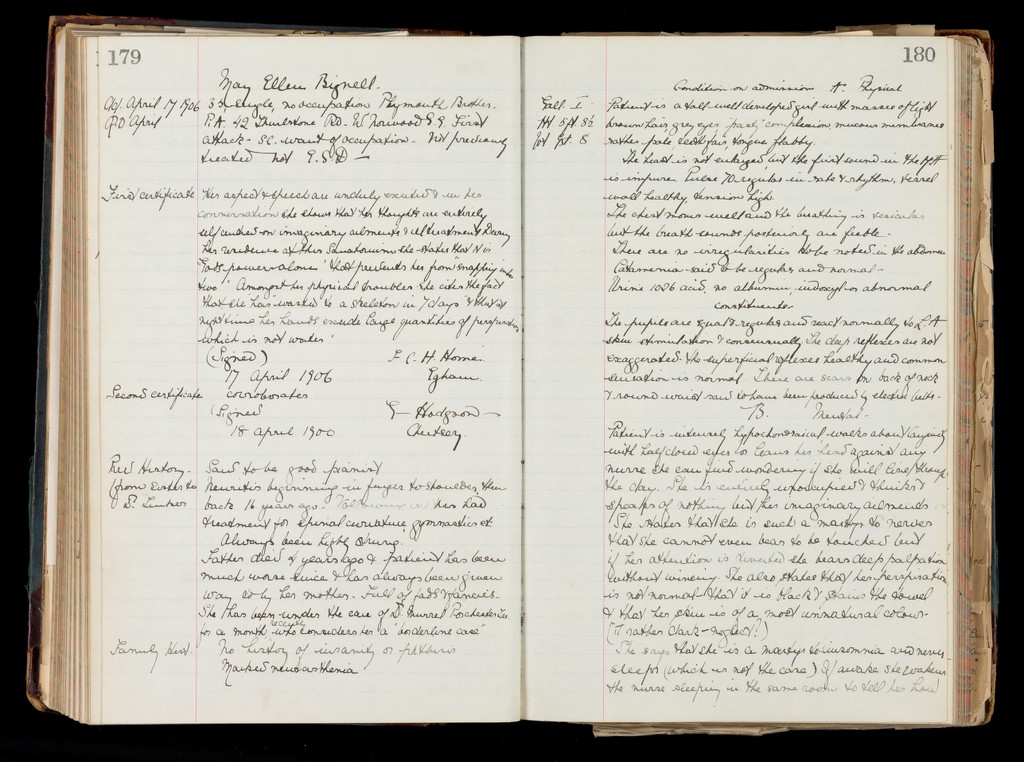 179
May Ellen Bignell.
April 17 1906 single, no occupation Plymouth Brother.
P.O April P.A. 42 Thurlstone Rd. W. Norwood S.E. First
attack - S.C. want of occupation. Not previously
treated Not E.S.D —
First certificate Her aspect & speech are unduly excited & in her
conversation she shows that her thoughts are entirely
self centred on imaginary ailments & ill treatment. During
her residence at this Sanatorium she states that it is
"God's power alone" that prevents her from "snapping into
two". Amongst her physical troubles she cites the fact
that she has 'wasted' to a skeleton in 7 days & that at
night time her hands exude large quantities of perspiration
which is not water'
(Signed) F. C. H. Horne.
17 April 1906 Egham.
Second certificate corroborates
(Signed Hodgson —
18 April 1900 Chertsey.
Prev History. Said to be good pianist
(from Sister & Neuritis beginning in finger to shoulder, then
Dr. back 16 years ago. has had
treatment for spinal curvature gymnastics et
Always been highly strung.
Father died 4 years ago & patient has been
much worse since & has always been given
way to by her mother. Full of fads & fancies.
She has been under the care of Dr. Murrel
for a month recently who considers her a "borderline case"
Family Hist. No history of insanity or phthisis
Marked neurasthenia
180
Condition on admission A. Physical
Gall. I. Patient is a tall well developed girl with masses of light
Ht 5ft 8½ brown hair, grey eyes 'pasty' complexion, mucous membranes
Wt 9st. 8 rather pale, teeth fair, tongue flabby.
The heart is not enlarged but the first sound in the
is impure. Pulse 70 regular in rate & rhythm, vessel
wall healthy tension high.
The chest moves well and the breathing is vesicular
but the breath sounds posteriorly are feeble.
There are no irregularities to be noted in the abdomen
Catamenia said to be regular and normal.
Urine 1026 acid, no albumen, indoxyl or abnormal
constituents.
The pupils are equal & regular and react normally to L. A
skin stimulation & consensually. The deep reflexes are not
exaggerated, the superficial reflexes healthy and common
sensation is normal. There are scars on back of neck
& round waist said to have been produced by electric belts.
B. Mental.
Patient is intensely hypochondriacal walks about languidly
with half closed eyes or leans her head against any
nurse she can find wondering if she will live through
the day. She is entirely unoccupied & thinks &
speaks of nothing but her imaginary ailments.
She states that she is such a martyr to nerves
that she cannot even bear to be touched but
if her attention is diverted she bears deep palpation
without wincing. She also states that her perspiration
is not normal that it is black & stains the towel
& that her skin is of a most unnatural colour.
(It rather dark - neglect?)
She says that she is a martyr to insomnia and never
sleeps (which is not the case) If awake she wakens
the nurse sleeping in the same room to tell her how